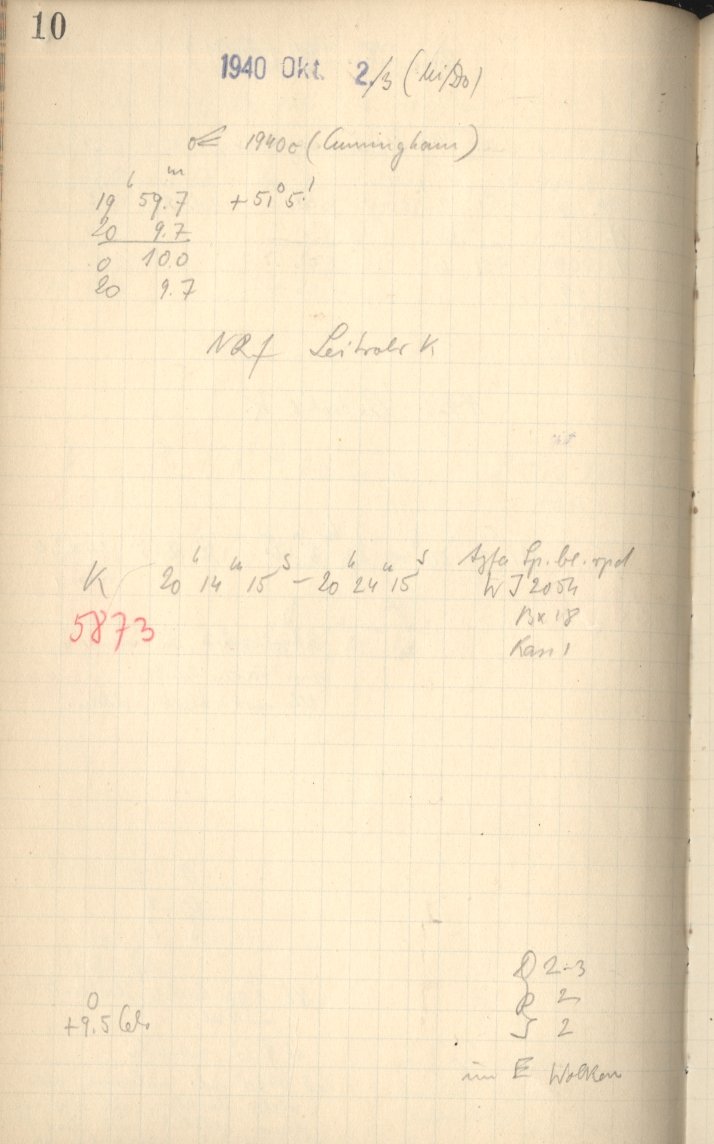 10
1940 Okt. 2./3 (Mi/Do)
☄ 1940c (Cunningham)
19ʰ 59.ᵐ7 +51°5.'
20 9.7
0 10.0
20 9.7
Leitrohr K
K 20ʰ 14ᵐ 15ˢ – 20ʰ 24ᵐ 15ˢ Agfa Sp. bl. rpd
5873
Kass 1
D 2-3
R 2
S 2
+9.°5 Cels.
im E Wolken